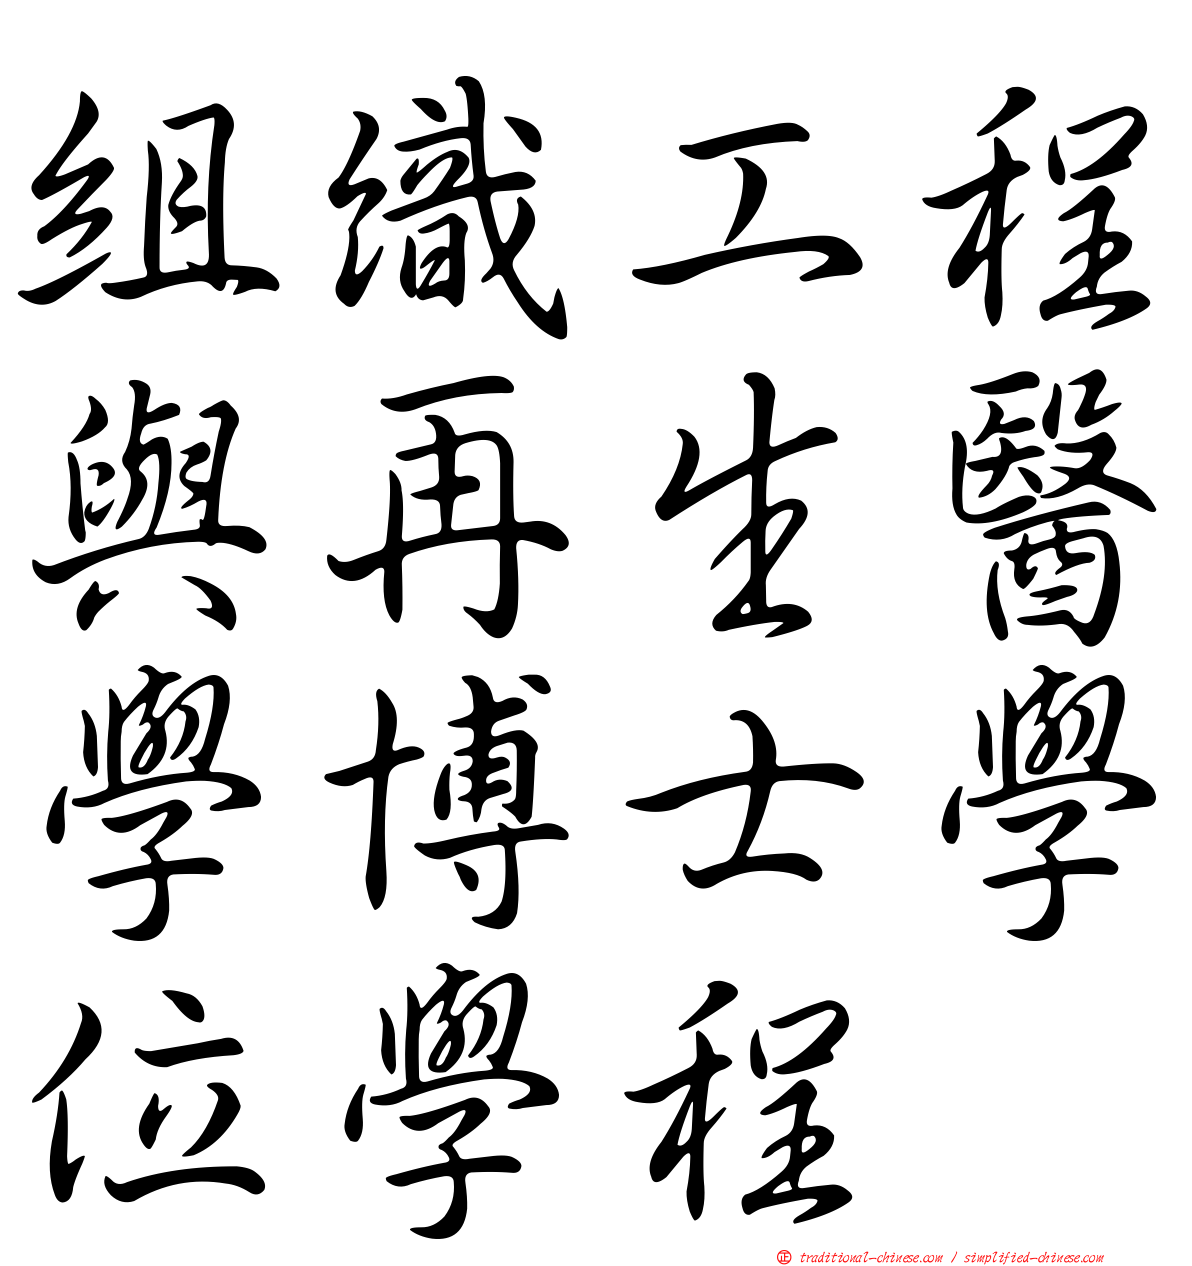 組織工程
與再生醫
學博士學
位學程
正 traditional-chinese.com / simplified-chinese.com